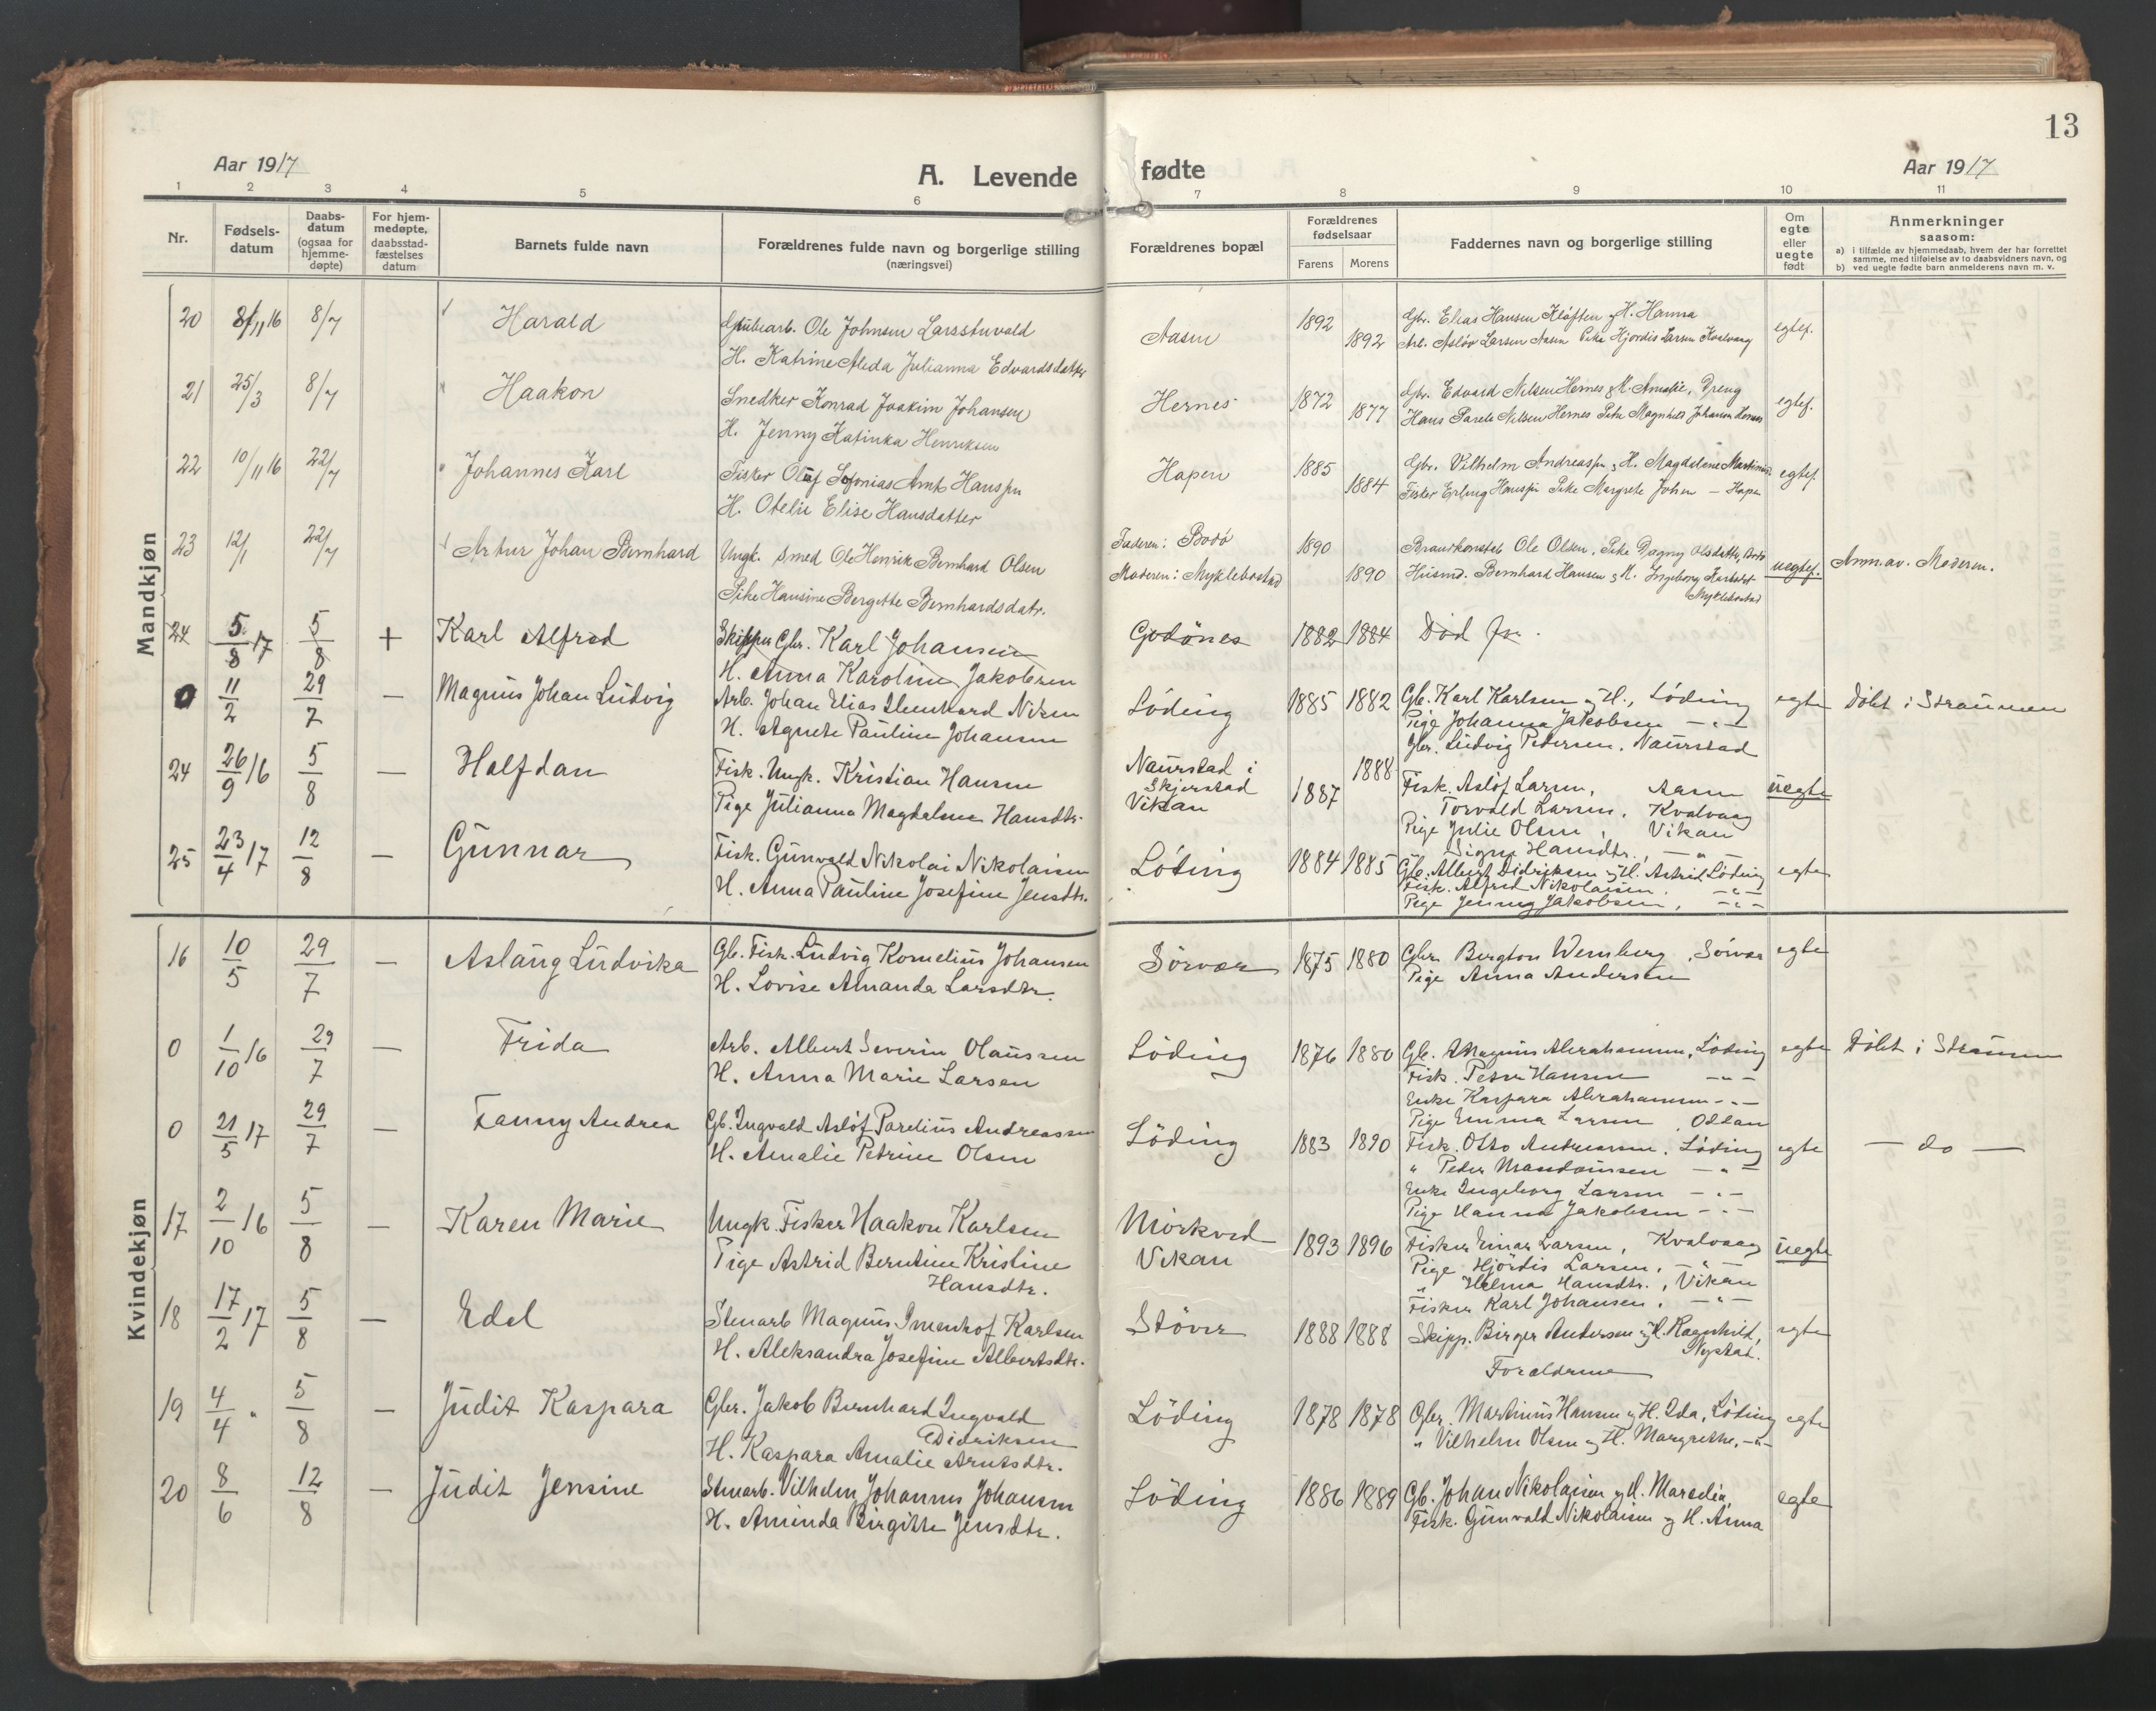 13
Aar 1917
A. Levende fødte
Aar 1917
1 2 3 4 5 6 7 8 9 10 11
Nr.
Fødsels-
datum
Daabs-
datum
(ogsaa for
hjemme-
døpte)
For hjem-
medøpte,
daabsstad-
fæstelses
datum
Barnets fulde navn
Forældrenes fulde navn og borgerlige stilling
(næringsvei)
Forældrenes bopæl
Forældrenes
fødselsaar
Farens Morens
Faddernes navn og borgerlige stilling
Om
egte
eller
uegte
født
Anmerkninger
saasom:
a) i tilfælde av hjemmedaab, hvem der har forrettet
samme, med tilføielse av to daabsvidners navn, og
b) ved uegte fødte barn anmelderens navn m. v.
Mandkjøn
20 8/11 16 8/7 Harald Grubearb. Ole Johnsen Larsstuvold Aasen 1892 Gbr. Elias Hansen Kløften og H. Hanna egtef.
H. Katrine Aleda Julianna Edvardsdatter 1892 Arb. Asløv Larsen Aasen Pike Hjordis Larsen Kvalvaag
21 25/3 8/7 Haakon Snedker Konrad Joakim Johansen Hernes 1872 Gbr. Edvard Nilsen Hernes & H. Amalie, Dreng egtef.
H. Jenny Katinka Henriksen 1877 Hans Parele Nilsen Hernes Pike Magnhild Johansen Hernes
22 10/11 16 22/7 Johannes Karl Fisker Olaf Sofonias Arnt Hanssen Hapen 1885 Gbr. Vilhelm Andreassen & H. Magdalene egtef.
H. Otelie Elise Hansdatter 1884 Fisker Erling Hanssen Pike Margrete Johsen — Hapen
23 12/1 22/7 Artur Johan Bernhard Ungk. Smed Ole Henrik Bernhard Olsen Faderen: Bodø 1890 Brandkonstab Ole Olsen, Pike Dagny Olsdatter, Bodø uegtef. Anm. av. Moderen.
Pike Hansine Bergitte Bernhardsdatr. Moderen: Myklebostad 1890 Husmd. Bernhard Hansen & H. Ingeborg
Myklebostad
24 5/8 17 5/8 + Karl Alfred Skipper Gbr. Karl Johansen Godønes 1882 1884 Død
H. Anna Karoline Jakobsen
0 11/2 29/7 — Magnus Johan Ludvig Arb. Johan Elias Nilsen Löding 1885 1882 Gb. Karl Karlsen og H., Löding egte Döbt i Straumen
H. Agnete Pauline Johansen Pige Johanna Jakobsen — " —
Gbr. Ludvig Pedersen, Naurstad
24 26/9 16 5/8 — Halfdan Fisk. Ungk. Kristian Hansen Naurstad i Skjerstad 1888 Fisk. Aslöf Larsen, Aasen uegte
Pige Julianna Magdalene Hansdtr. Vikan 1887 Torvald Larsen, Kvalvaag
Pige Julie Olsen, Vikan
Signe Hansdtr., — " —
25 23/4 17 12/8 — Gunnar Fisk. Gunvald Nikolai Nikolaisen Löding 1884 1885 Gb. Albert Didriksen og H. Astrid, Löding egte
H. Anna Pauline Josefine Jensdtr. Fisk. Alfred Nikolaisen, — " —
Pige Jenny Jakobsen, — " —
Kvindekjøn
16 10/5 29/7 — Aslaug Ludvika Gb. Fisk. Ludvig Kornelius Johansen Sörvær 1875 1880 Gbr. Bergton Wensberg, Sörvær egte
H. Lovise Amanda Larsdtr. Pige Anna Andersen
0 1/10 16 29/7 — Frida Arb. Albert Severin Olaussen Löding 1876 1880 Gb. Magnus Abrahamsen, Löding egte Döbt i Straumen
H. Anna Marie Larsen Fisk. Peter Hansen — " —
Enke Kaspara Abrahamsen — " —
Pige Emma Larsen, Oddan
0 21/5 17 29/7 — Fanny Andrea Gb. Ingvald Aslöf Parelius Andreassen Löding 1883 1890 Fisk. Otto Andreassen, Löding egte — do —
H. Amalie Petrine Olsen " Peder — " —
Enke Ingeborg Larsen — " —
Pige Hanna Jakobsen — " —
17 2/10 16 5/8 — Karen Marie Ungk. Fisker Haakon Karlsen Mörkved 1893 1896 Fisker Einar Larsen, Kvalvaag uegte
Pige Astrid Berntine Kristine Vikan Pige Hjördis Larsen, — " —
Hansdtr. " Helma Hansdtr., Vikan
Fisker Karl Johansen, — " —
18 17/2 17 5/8 — Edel Stenarb Magnus Karlsen Stöver 1888 1888 Skipp. Birger Andersen og H. Ragnhild, egte
H. Aleksandra Josefine Albertsdtr. Nystad.
Forældrene
19 4/4 " 5/8 — Judit Kaspara Gbr. Jakob Bernhard Ingvald Löding 1878 1878 Gbr. Martinus Hansen og H. Ida, Löding egte
Didriksen " Vilhelm Olsen og H. Margrethe, — " —
H. Kaspara Amalie Arntsdtr.
20 8/6 12/8 — Judit Jensine Stenarb. Vilhelm Johannes Johansen Löding 1886 1889 Gb. Johan Nikolaisen og H. Maredia, egte
H. Aminda Birgitte Jensdtr. Fisk. Gunvald Nikolaisen og H. Anna